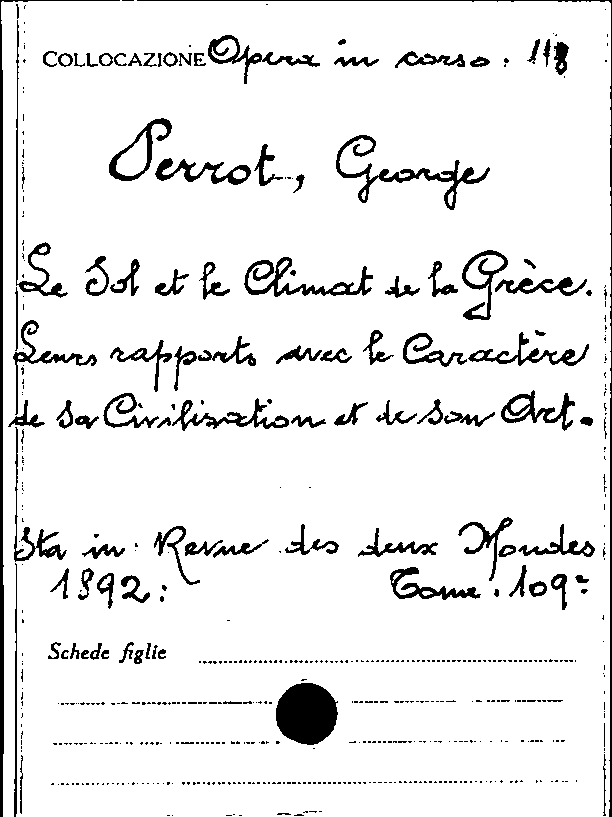 COLLOCAZIONE Opera in corso. 118
Perrot, George
Le Sol et le Climat de la Grèce.
Leurs rapports avec le Caractère
de sa Civilization et de son Art.
Sta in: Revue des deux Mondes
1892: Tome. 109º
Schede figlie